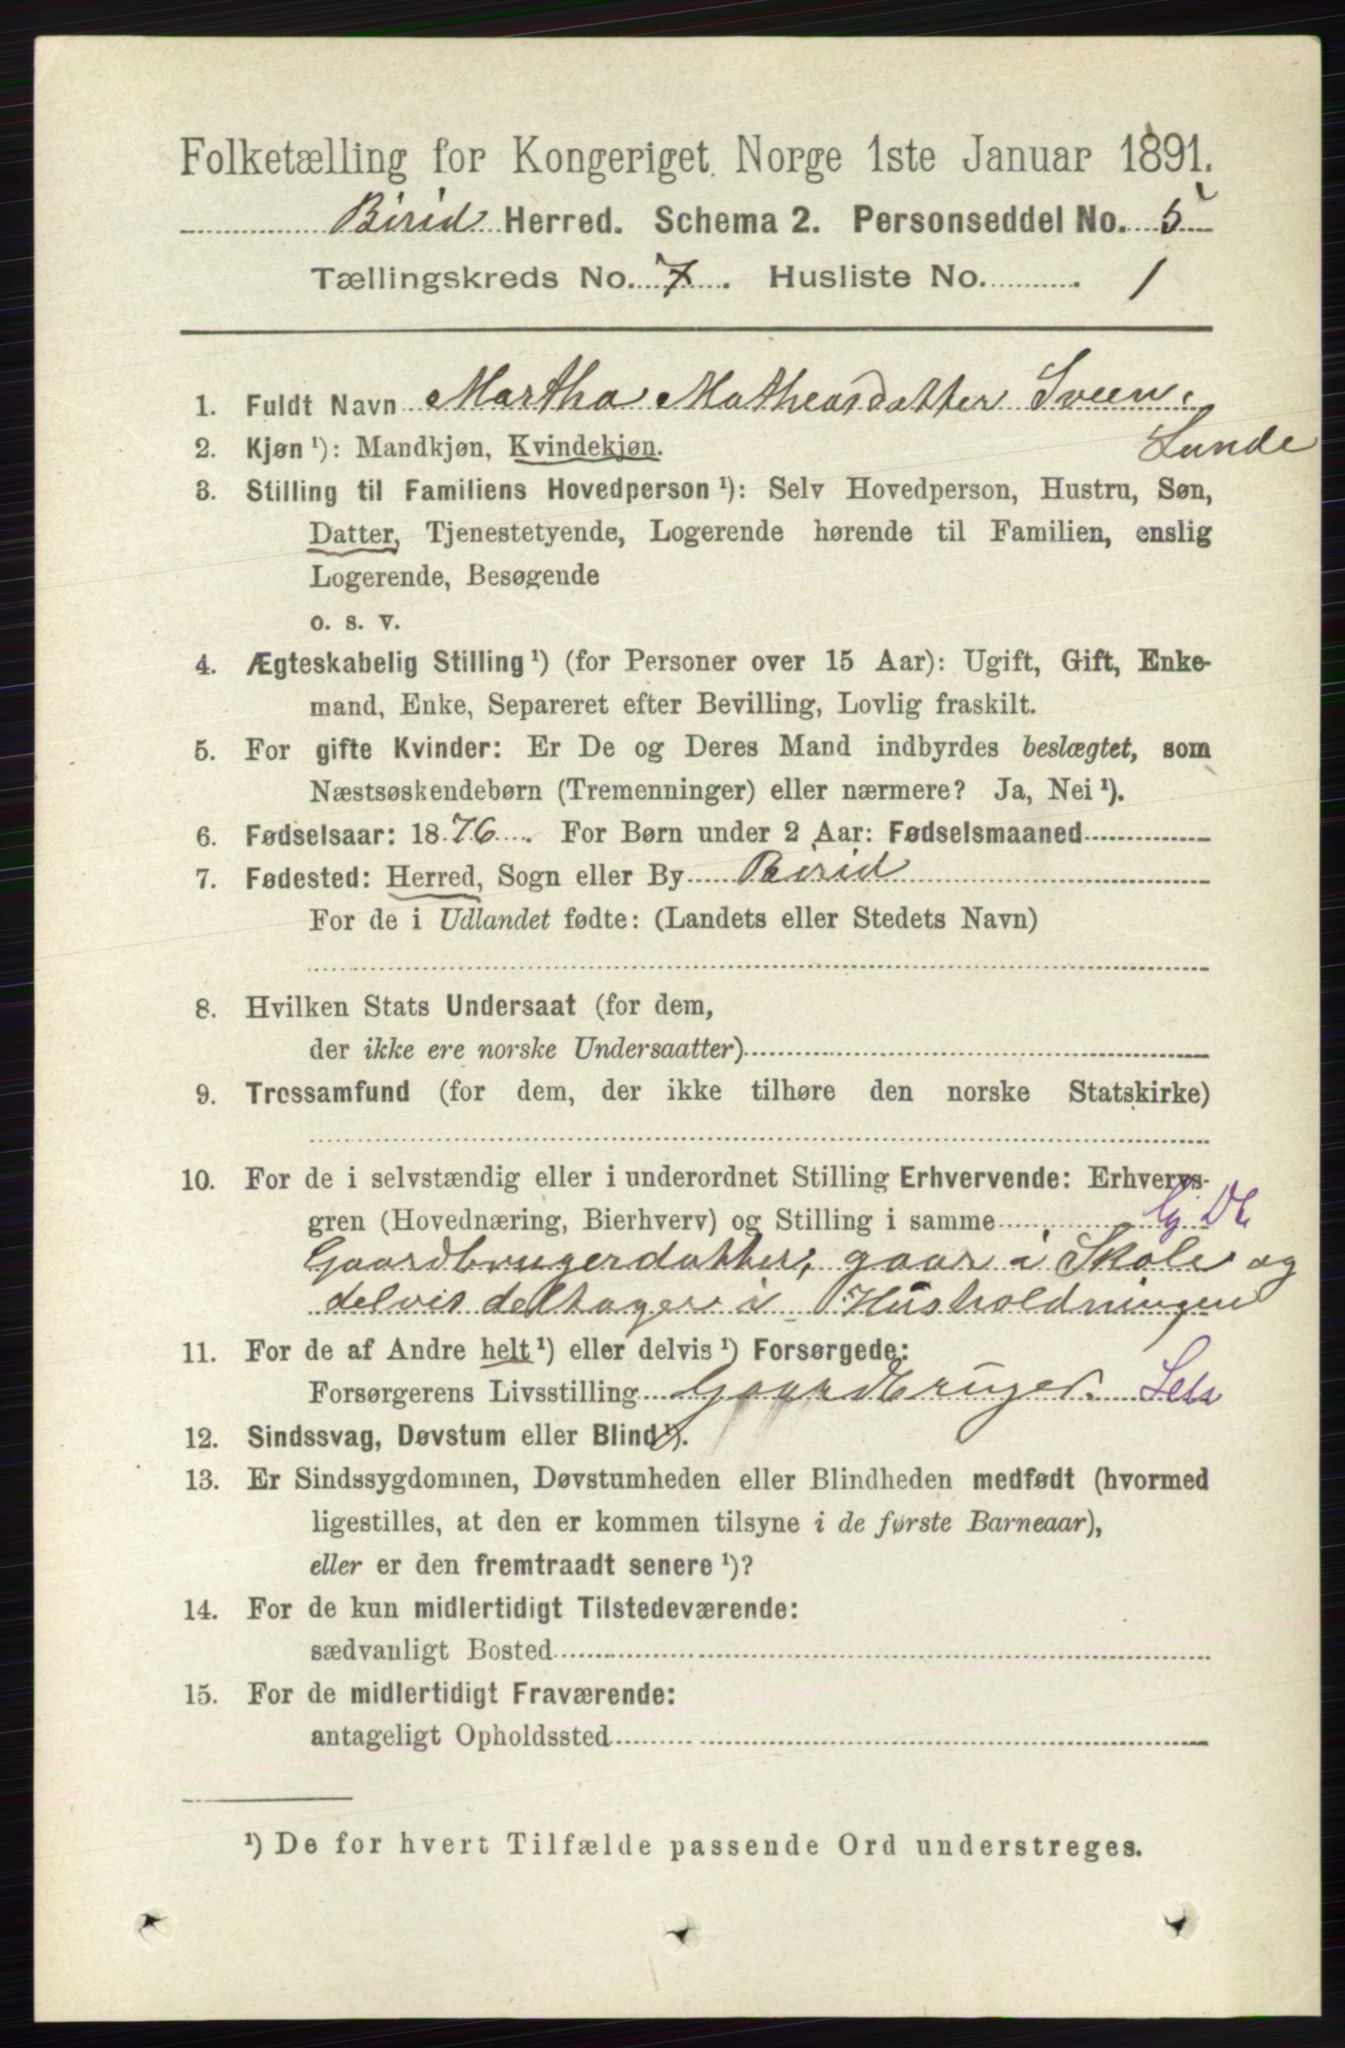 Folketælling for Kongeriget Norge 1ste Januar 1891.
Birid Herred. Schema 2. Personseddel No. 5
Tællingskreds No. 7. Husliste No. 1
1. Fuldt Navn Martha Matheasdatter Sveen,
Lunde
2. Kjøn ¹): Mandkjøn, Kvindekjøn.
3. Stilling til Familiens Hovedperson ¹): Selv Hovedperson, Hustru, Søn,
Datter, Tjenestetyende, Logerende hørende til Familien, enslig
Logerende, Besøgende
o. s. v.
4. Ægteskabelig Stilling ¹) (for Personer over 15 Aar): Ugift, Gift, Enke-
mand, Enke, Separeret efter Bevilling, Lovlig fraskilt.
5. For gifte Kvinder: Er De og Deres Mand indbyrdes beslægtet, som
Næstsøskendebørn (Tremenninger) eller nærmere? Ja, Nei ¹).
6. Fødselsaar: 1876. For Børn under 2 Aar: Fødselsmaaned
7. Fødested: Herred, Sogn eller By Birid
For de i Udlandet fødte: (Landets eller Stedets Navn)
8. Hvilken Stats Undersaat (for dem,
der ikke ere norske Undersaatter)
9. Trossamfund (for dem, der ikke tilhøre den norske Statskirke)
10. For de i selvstændig eller i underordnet Stilling Erhvervende: Erhvervs-
gren (Hovednæring, Bierhverv) og Stilling i samme
Gaardbrugerdatter, gaar i Skole og
delvis deltager i Husholdningen
11. For de af Andre helt ¹) eller delvis ¹) Forsørgede:
Forsørgerens Livsstilling Gaardbruger. Selv
12. Sindssvag, Døvstum eller Blind ¹).
13. Er Sindssygdommen, Døvstumheden eller Blindheden medfødt (hvormed
ligestilles, at den er kommen tilsyne i de første Barneaar),
eller er den fremtraadt senere ¹)?
14. For de kun midlertidigt Tilstedeværende:
sædvanligt Bosted
15. For de midlertidigt Fraværende:
antageligt Opholdssted
¹) De for hvert Tilfælde passende Ord understreges.